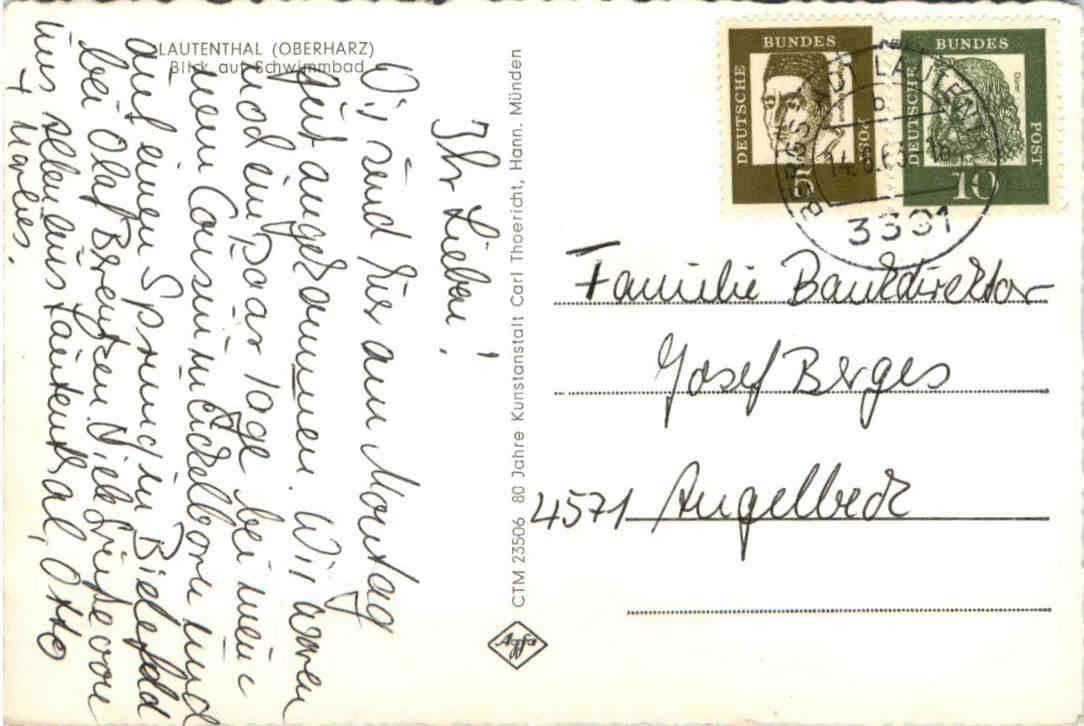 LAUTENTHAL (OBERHARZ)
Blick auf Schwimmbad
Ihr Lieben!
Wir sind hier am Montag
gut angekommen. Wir waren
noch ein paar Tage bei mein
nem Cousin in Eickelborn und
auf einen Sprung in Bielefeld
bei Olaf Berentzen. Viele Grüße von
uns allen aus Lautenthal, Otto
+ Marlies.
CTM 23506 80 Jahre Kunstanstalt Carl Thoericht, Hann. Münden
Agfa
DEUTSCHE
BUNDES
POST
DEUTSCHE
BUNDES
POST
Dürer
10
3391
Familie Bankdirektor
Josef Berges
4571 Angelbeck